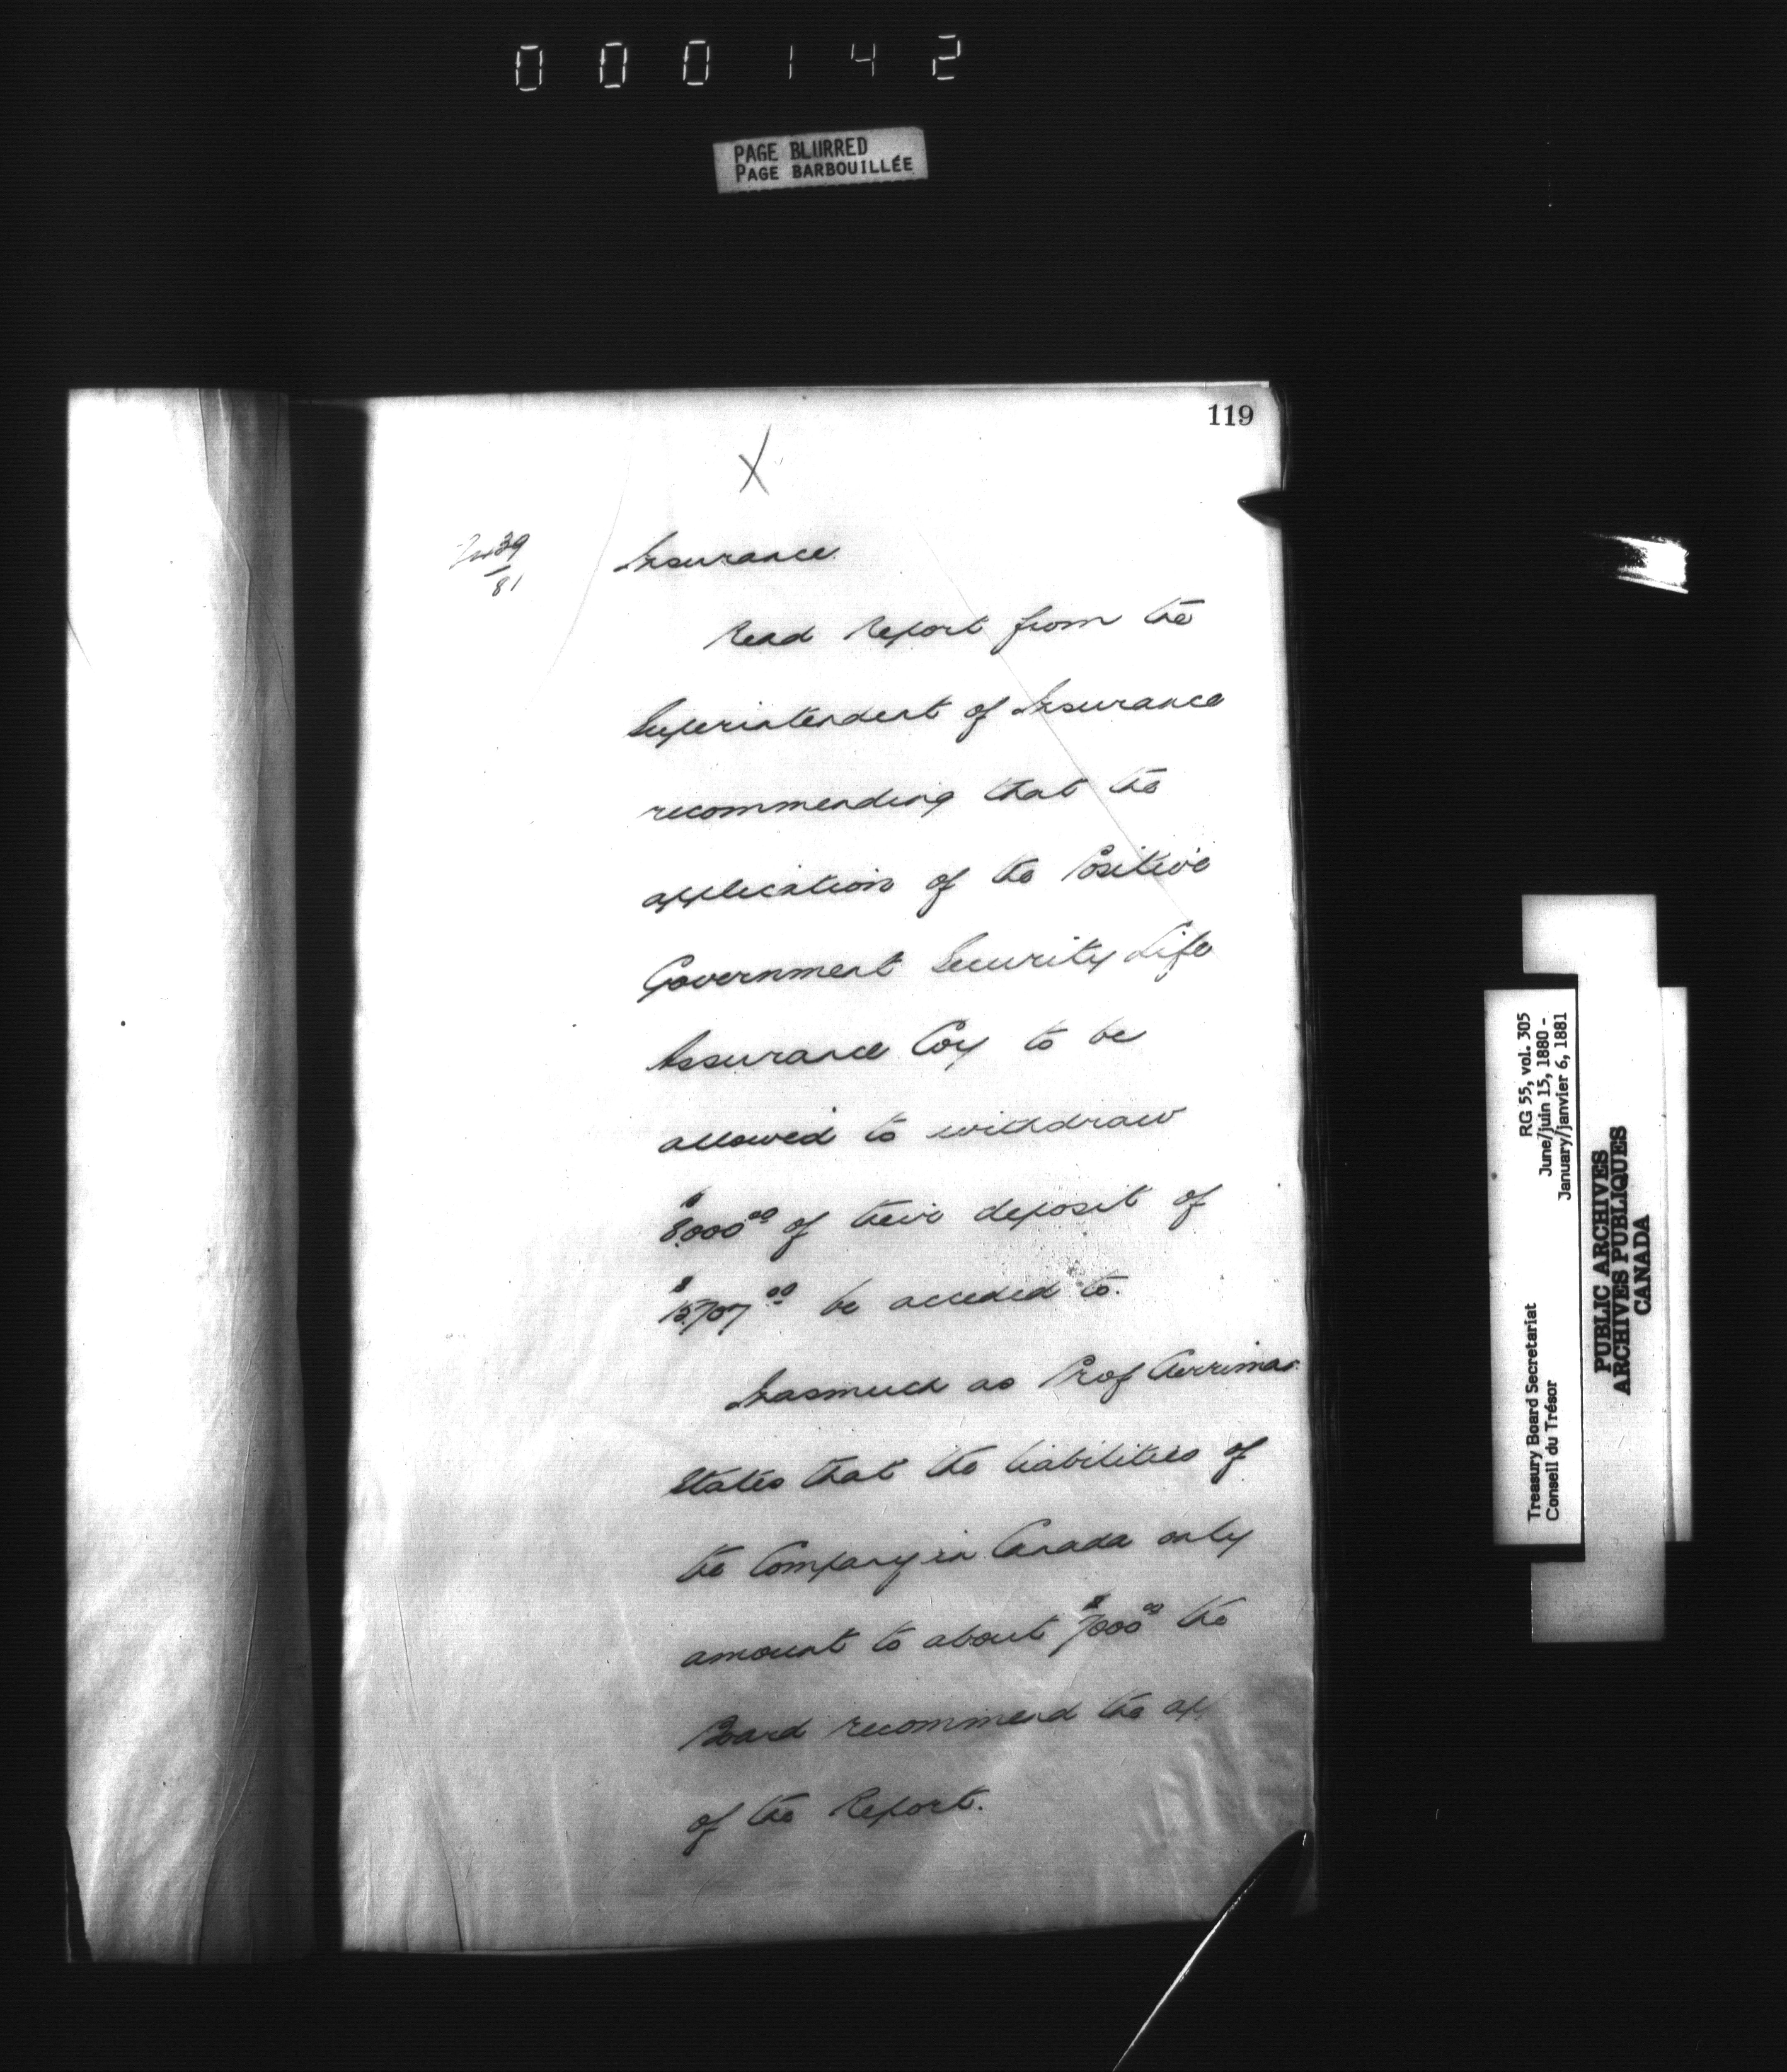 000142
PAGE BLURRED
PAGE BARBOUILLÉE
119
X
39
81
Insurance
Read Report from the
Superintendent of Insurance
recommending that the
application of the Positive
Government Security Life
Assurance Coy to be
allowed to withdraw
$8,000.00 of their deposit of
$15,707.00 be acceded to.
Inasmuch as Prof Cherriman
states that the liabilities of
the Company in Canada only
amount to about $7000.00 the
Board recommend the
of the Report.
Treasury Board Secretariat RG 55, vol. 305
Conseil du Trésor June/juin 15, 1880 -
January/janvier 6, 1881
PUBLIC ARCHIVES
ARCHIVES PUBLIQUES
CANADA